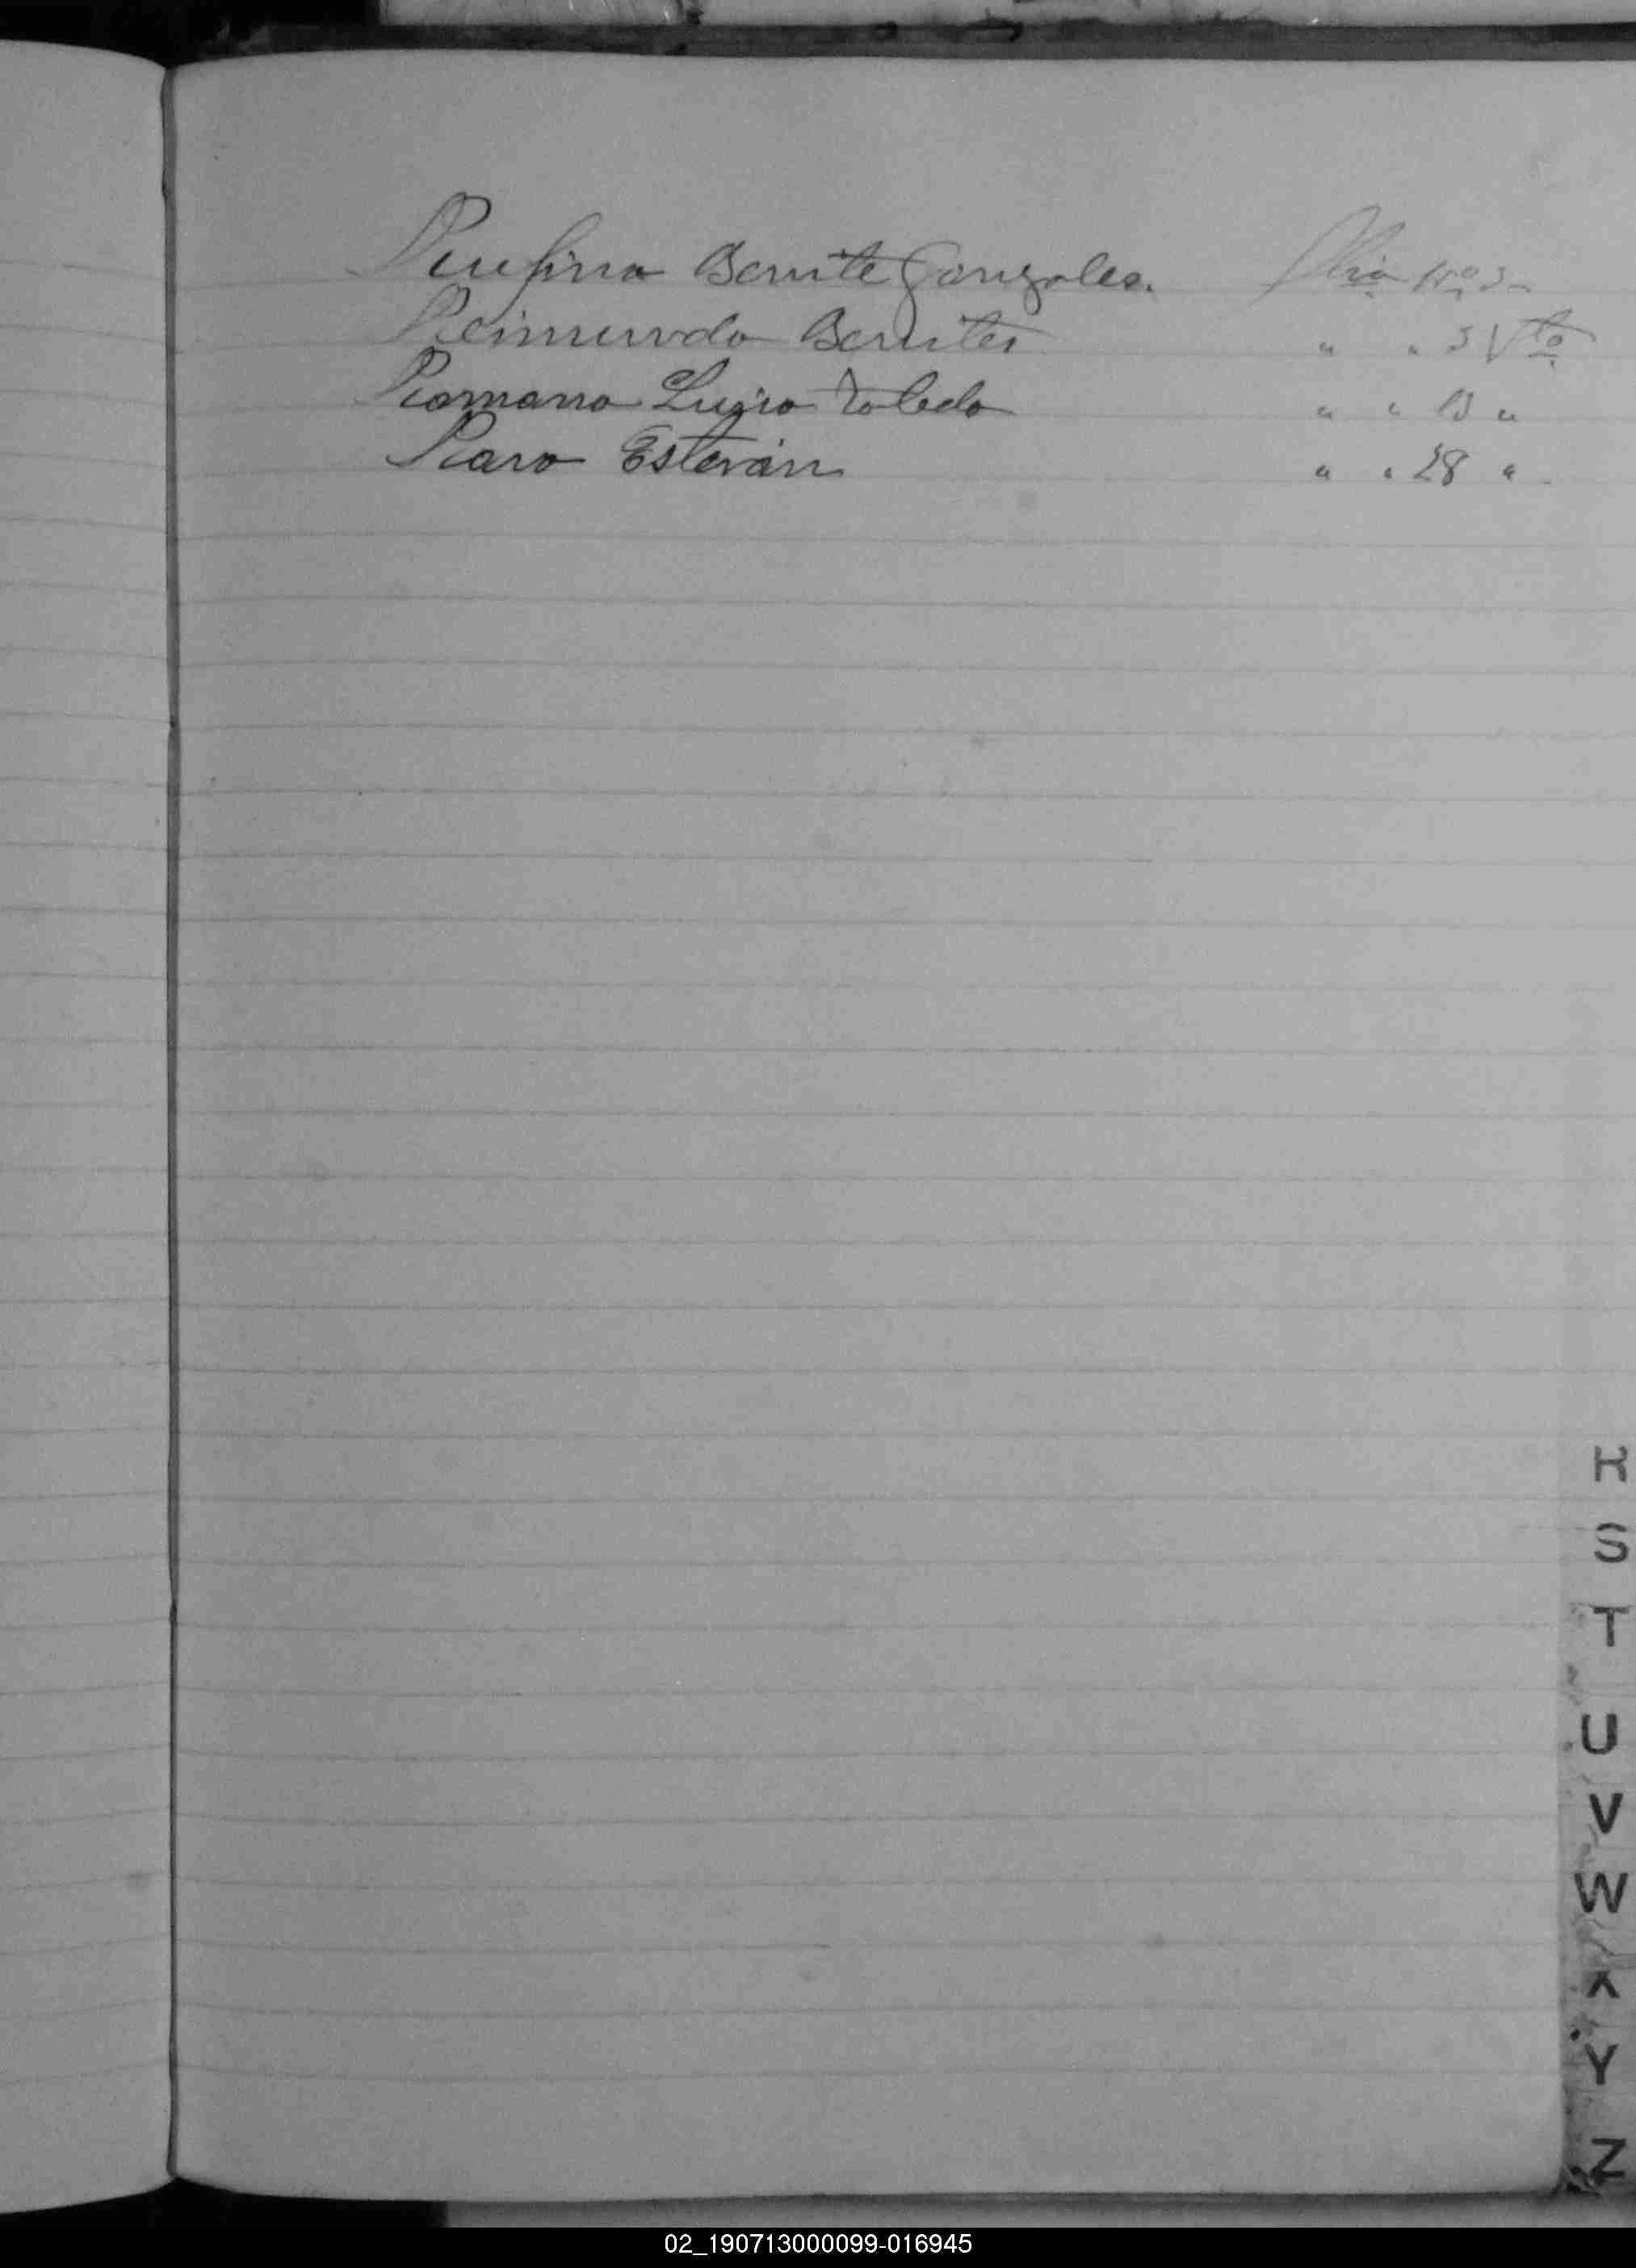 Rufina Benite Gonzales. Foja Nº 3
Reimundo Benites " " 3 Vta
Romano Lugo Toledo " " 13 "
Raro Esteván " " 28 "
R
S
T
U
V
W
X
Y
Z
02_190713000099-016945